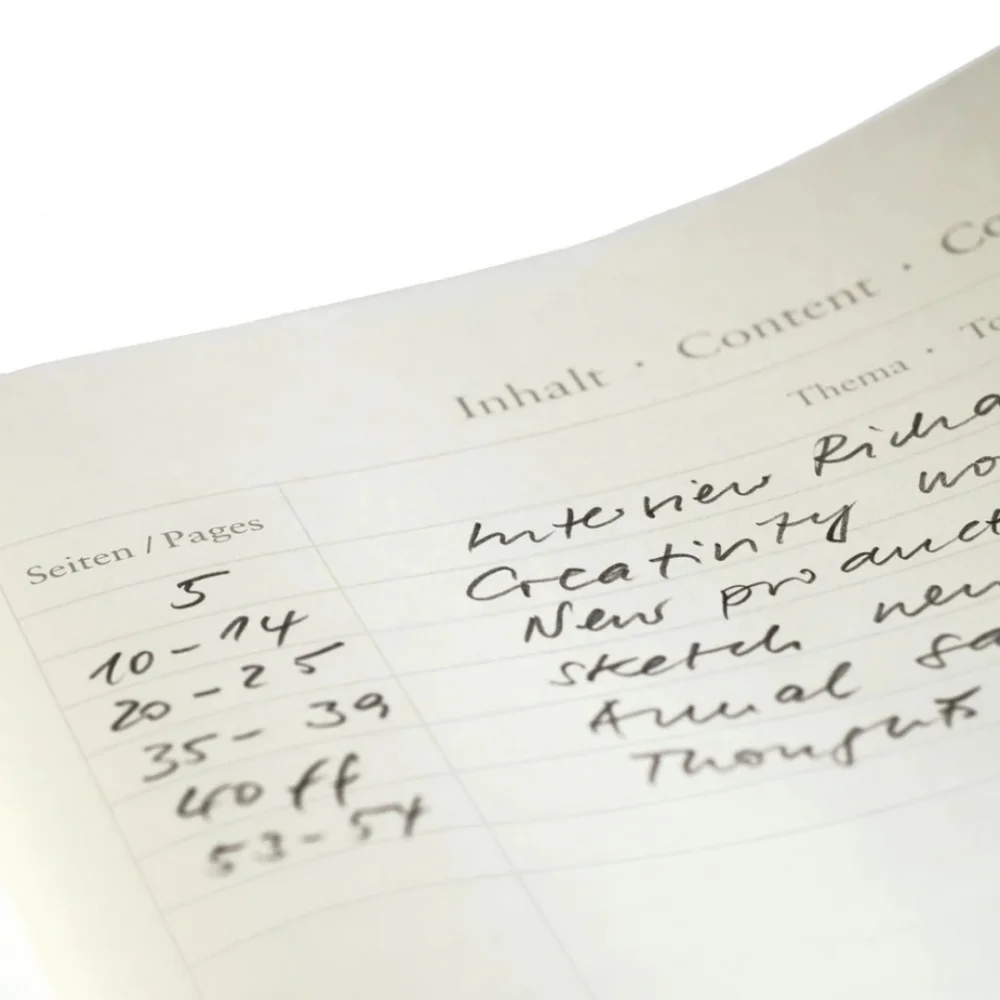 Inhalt · Content · Co
Thema · To
Seiten / Pages
5 Interview Richa
10 - 14 Creativity wo
20 - 25 New product
35 - 39 Sketch new
40 ff Annual sa
53 - 54 Thoughts